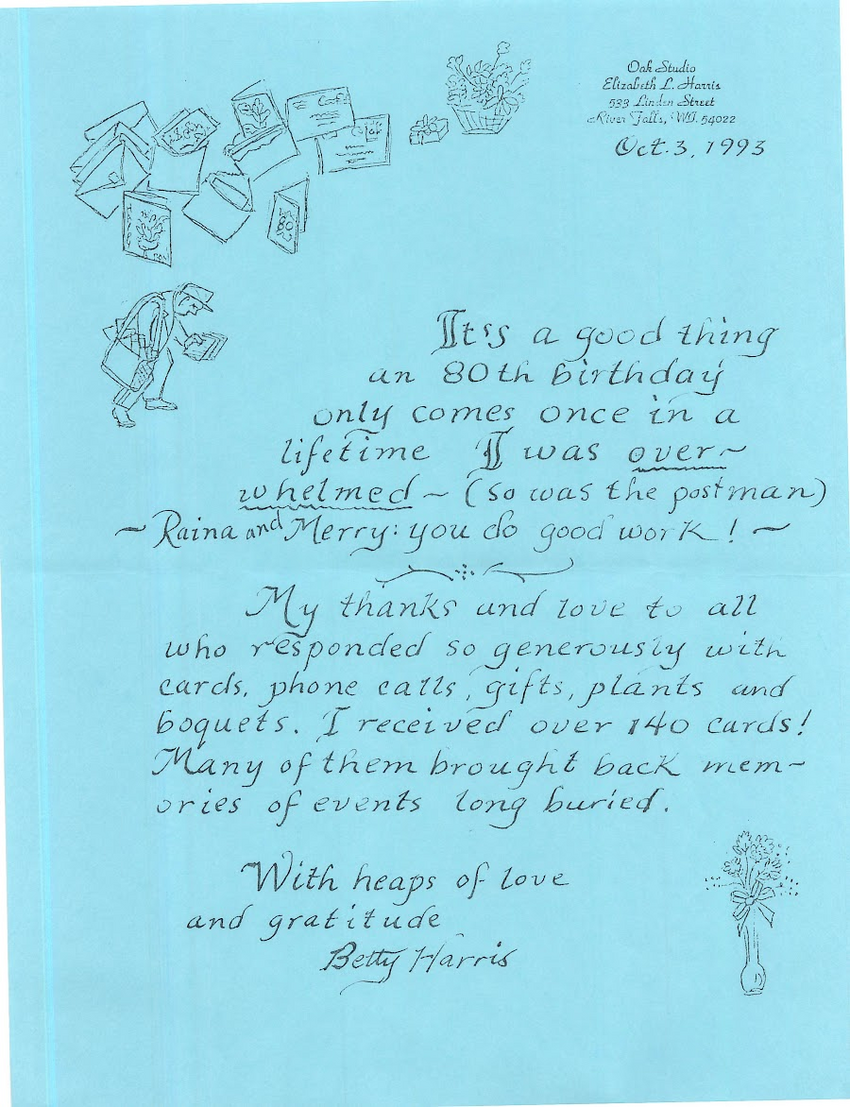 Oak Studio
Elizabeth L. Harris
533 Linden Street
River Falls, WI. 54022
Oct. 3, 1993
It's a good thing
an 80th birthday
only comes once in a
lifetime I was over~
whelmed ~ (so was the postman)
~ Raina and Merry: you do good work! ~
My thanks and love to all
who responded so generously with
cards, phone calls, gifts, plants and
boquets. I received over 140 cards!
Many of them brought back mem-
ories of events long buried.
With heaps of love
and gratitude
Betty Harris